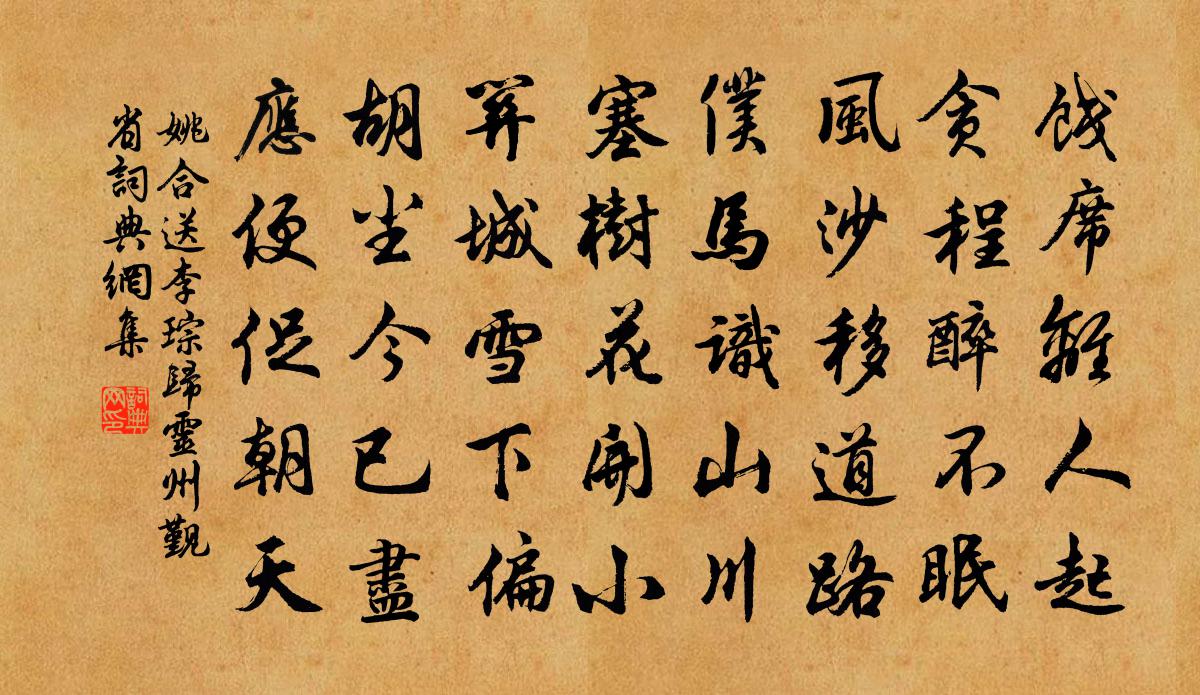 餞席離人起
貪程醉不眠
風沙移道路
僕馬識山川
塞樹花開小
關城雪下偏
胡塵今已盡
應便促朝天
姚合送李琮歸靈州覲
省詞典網集
詞典网印